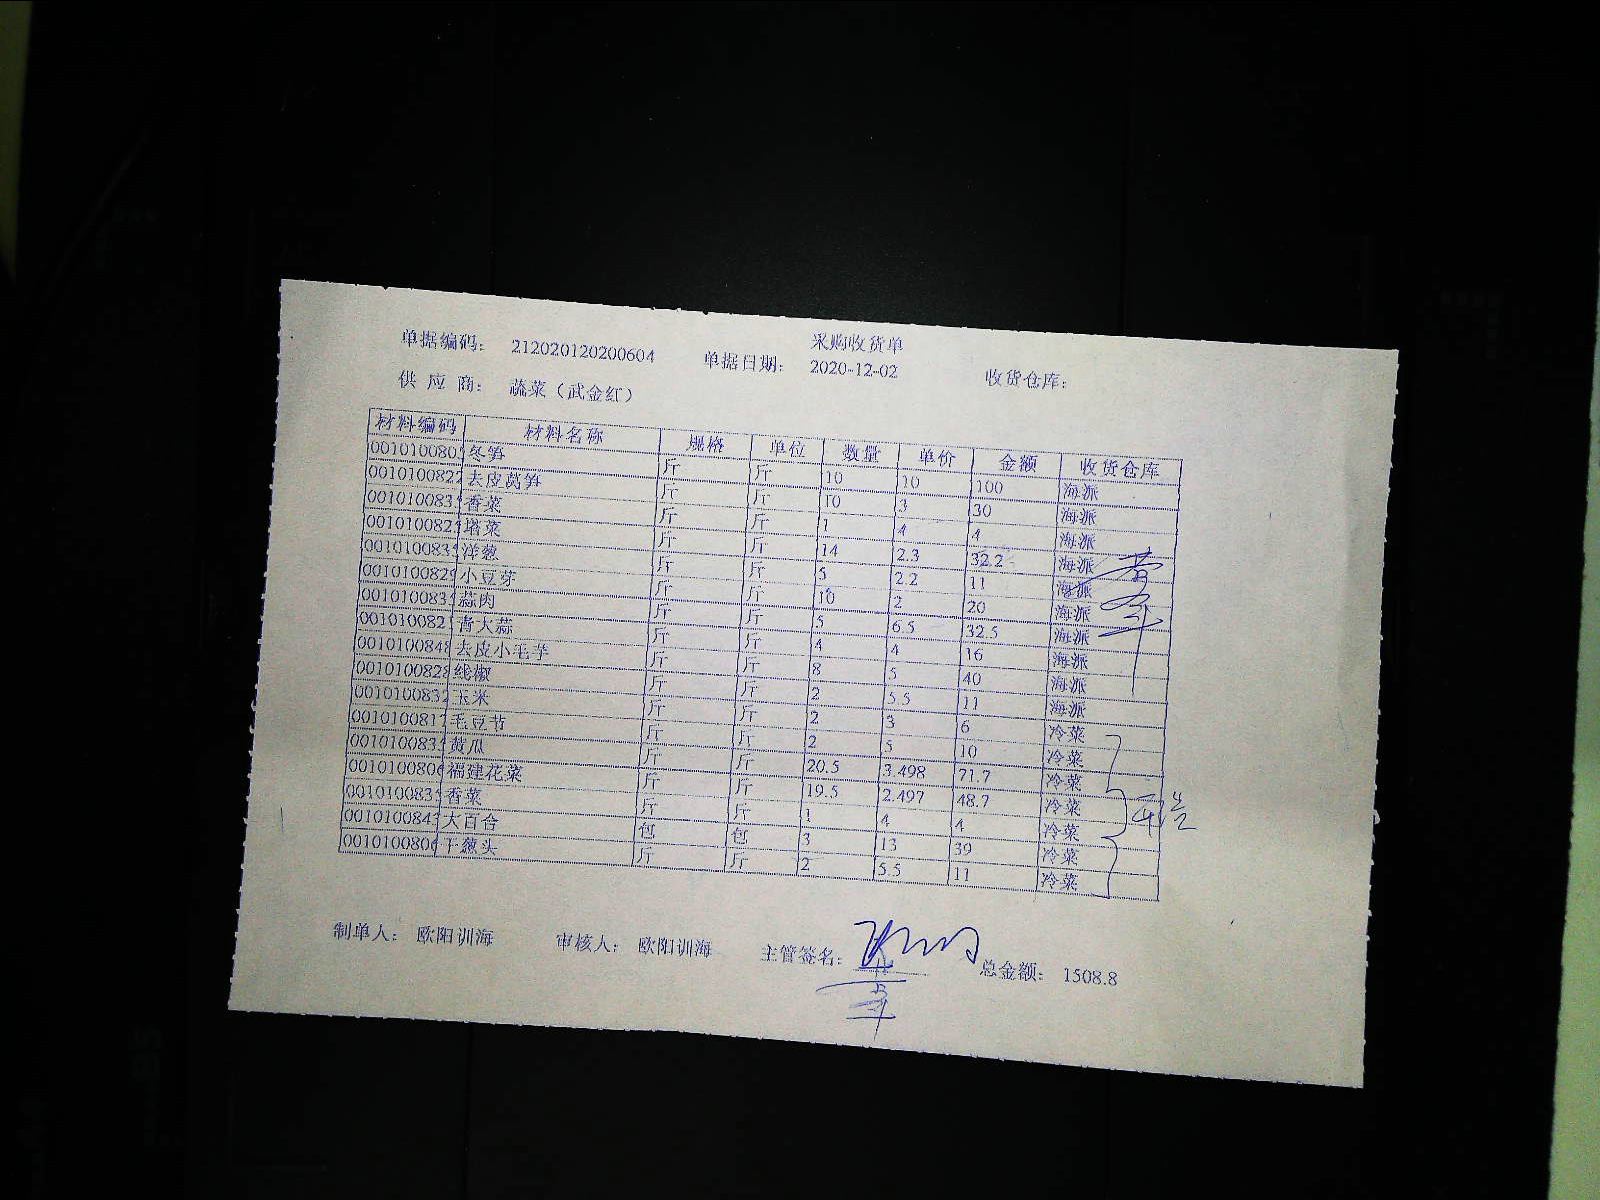 采购收货单
单据编码： 212020120200604 单据日期： 2020-12-02 收货仓库：
供 应 商： 蔬菜（武金红）
材料编码 材料名称 规格 单位 数量 单价 金额 收货仓库
001010080 冬笋 斤 斤 10 10 100 海派
0010100822 去皮莴笋 斤 斤 10 3 30 海派
001010083 香菜 斤 斤 1 4 4 海派
001010082 塔菜 斤 斤 14 2.3 32.2 海派
001010083 洋葱 斤 斤 5 2.2 11 海派
001010082 小豆芽 斤 斤 10 2 20 海派
001010083 蒜肉 斤 斤 5 6.5 32.5 海派
001010082 青大蒜 斤 斤 4 4 16 海派
001010084 去皮小毛芋 斤 斤 8 5 40 海派
001010082 线椒 斤 斤 2 5.5 11 海派
0010100832 玉米 斤 斤 2 3 6 冷菜
001010081 毛豆节 斤 斤 2 5 10 冷菜
001010083 黄瓜 斤 斤 20.5 3.498 71.7 冷菜
001010080 福建花菜 斤 斤 19.5 2.497 48.7 冷菜
001010083 香菜 斤 斤 1 4 4 冷菜
001010084 大百合 包 包 3 13 39 冷菜
001010080 干葱头 斤 斤 2 5.5 11 冷菜
制单人： 欧阳训海 审核人： 欧阳训海 主管签名： 总金额： 1508.8